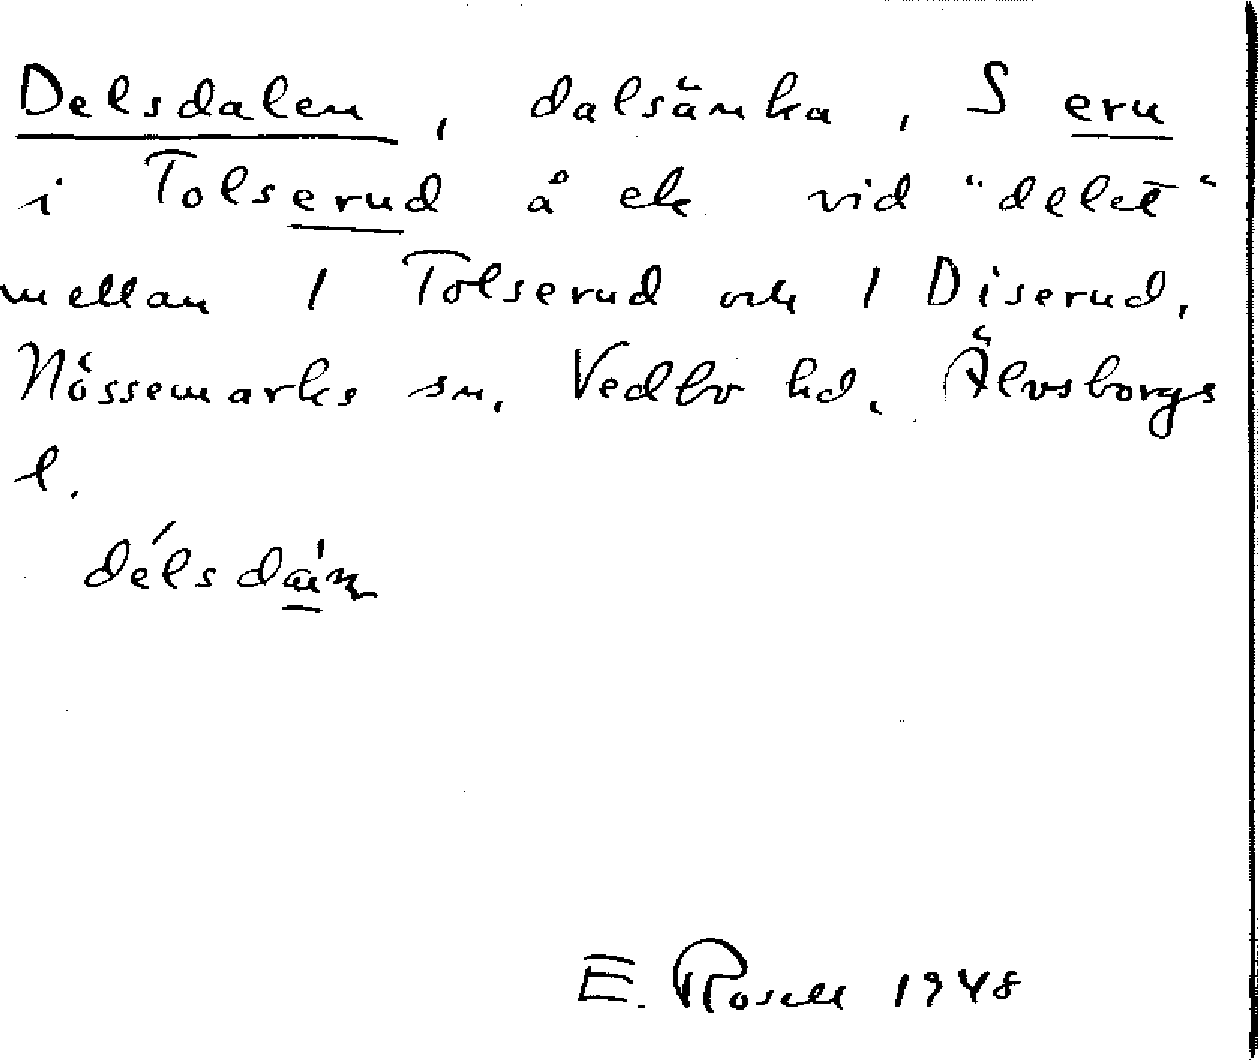 Delsdalen, dalsänka, S eru
i Tolserud å ek vid "delet"
mellan 1 Tolserud och 1 Diserud,
Nössemarks sn, Vedbo hd, Älvsborgs
l.
E. Rosell 1948